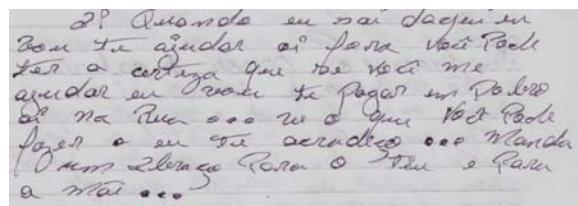 2º Quando eu sai daqui eu
vou te ajudar ai fora você Pode
ter a certeza que se você me
ajudar eu vou te Pagar em Dobro
ai na Rua ... ve o que você Pode
fazer e eu te acradeço ... Manda
um abraço Para o Teu e Para
a mãe ...